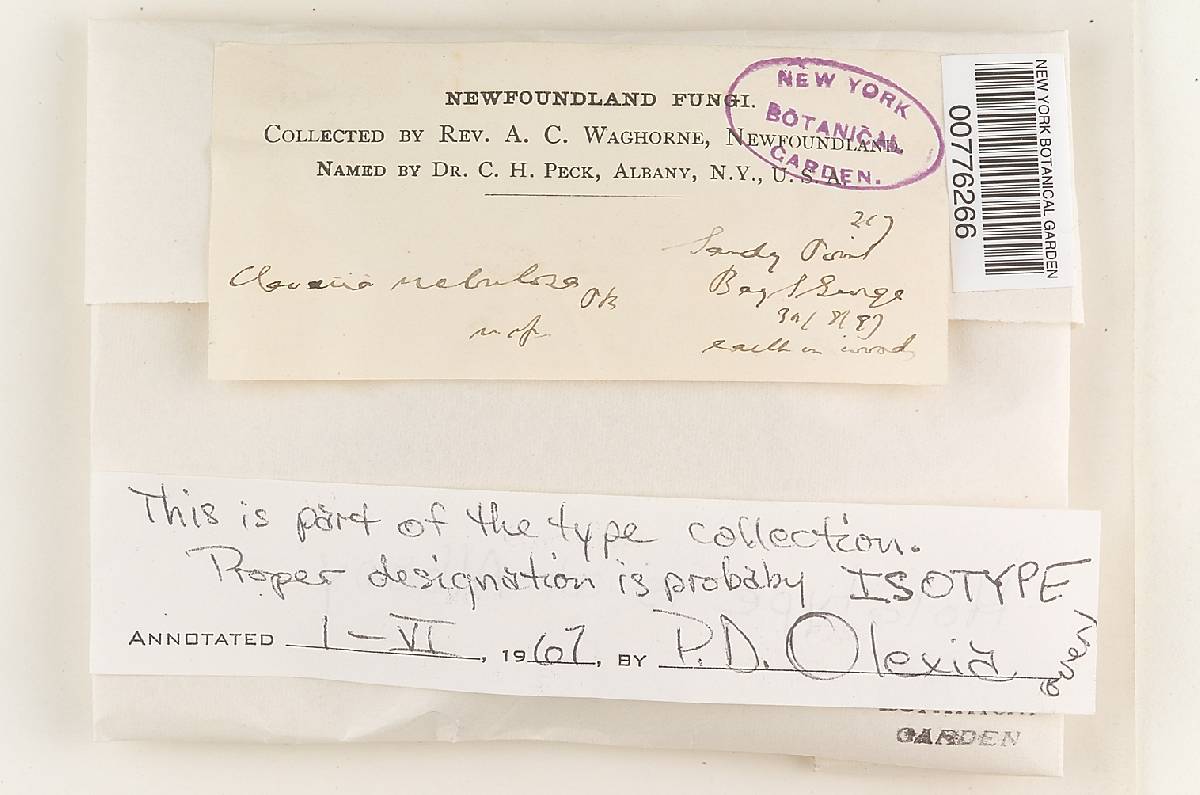 NEWFOUNDLAND FUNGI.
COLLECTED BY REV. A. C. WAGHORNE, NEWFOUNDLAND.
NAMED BY DR. C. H. PECK, ALBANY, N.Y., U. S. A.
NEW YORK
BOTANICAL
GARDEN.
NEW YORK BOTANICAL GARDEN
00776266
207
Sandy Point
Clavaria nebulosa Pk
Bay St George
earth in woods
This is part of the type collection.
Proper designation is probaby ISOTYPE
ANNOTATED 1-VI, 1967, BY P.D. Olexia
GARDEN